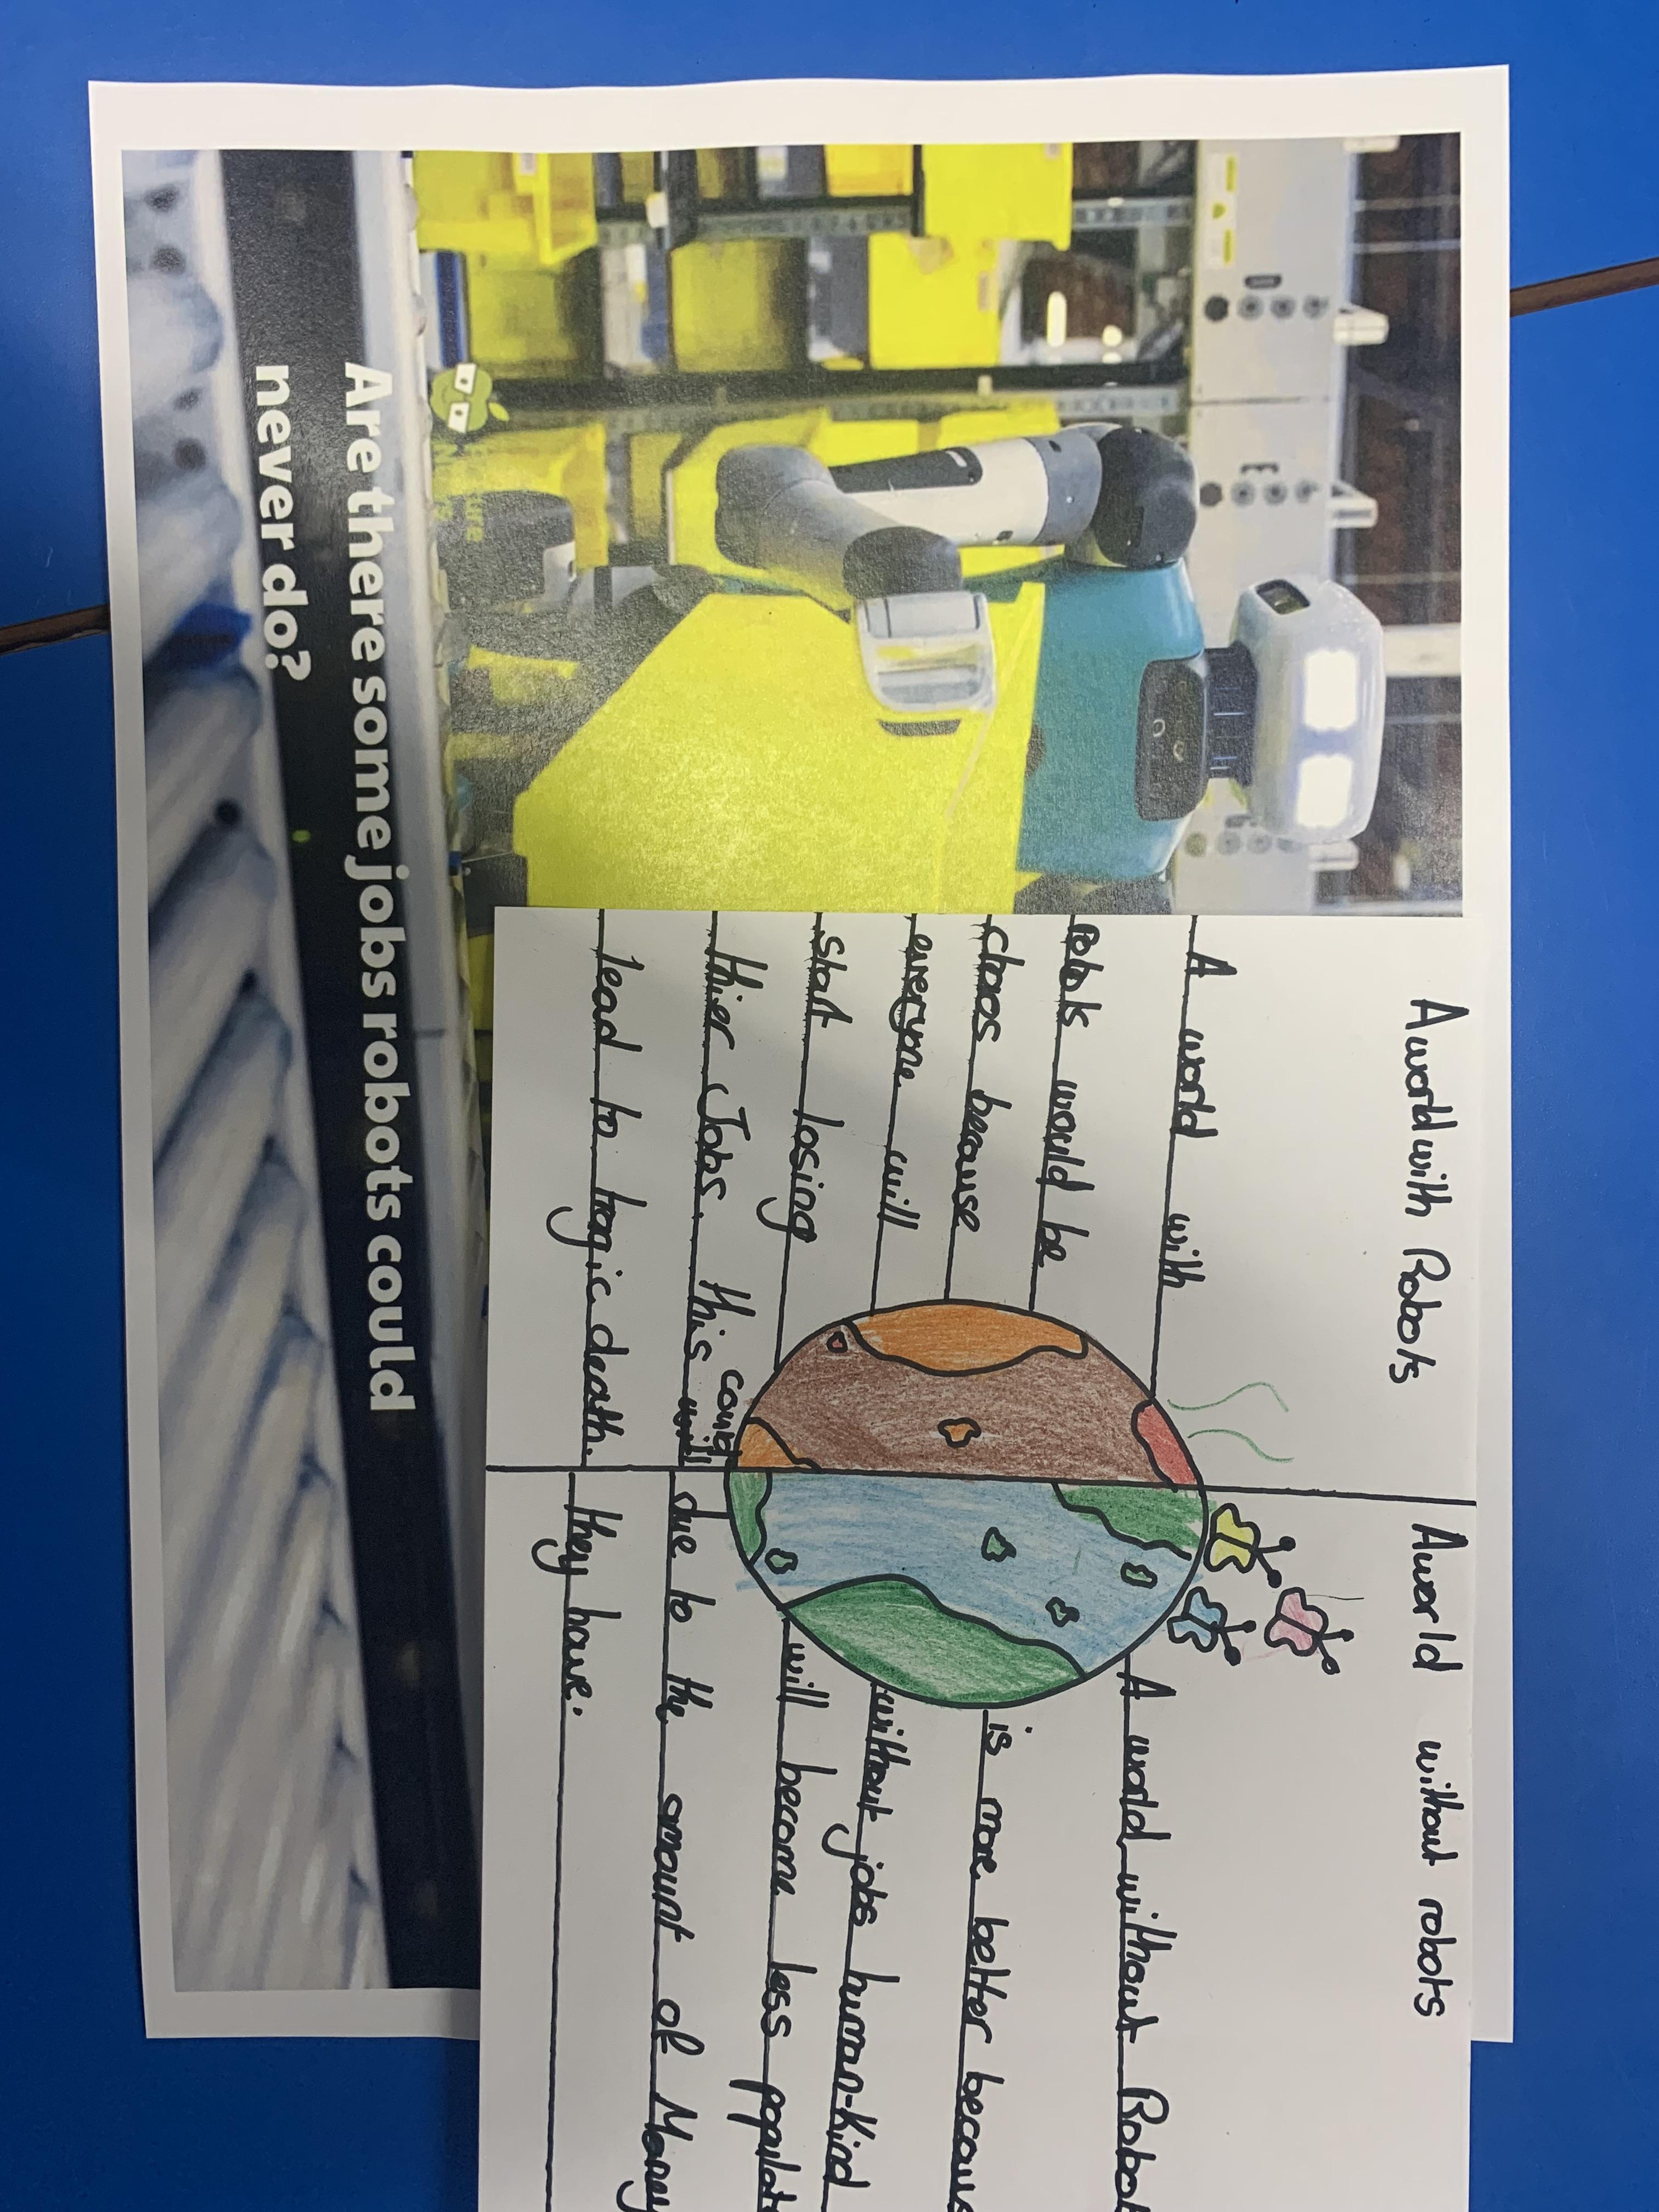 Are there some jobs robots could
never do?
A world with Robots
A world with
Robots would be
chaos because
everyone will
start losing
thier Jobs. this could will
lead to tragic death.
A world without robots
A world without
is more better
without jobs human-kind
will become less
due to the amount of Money
they have.